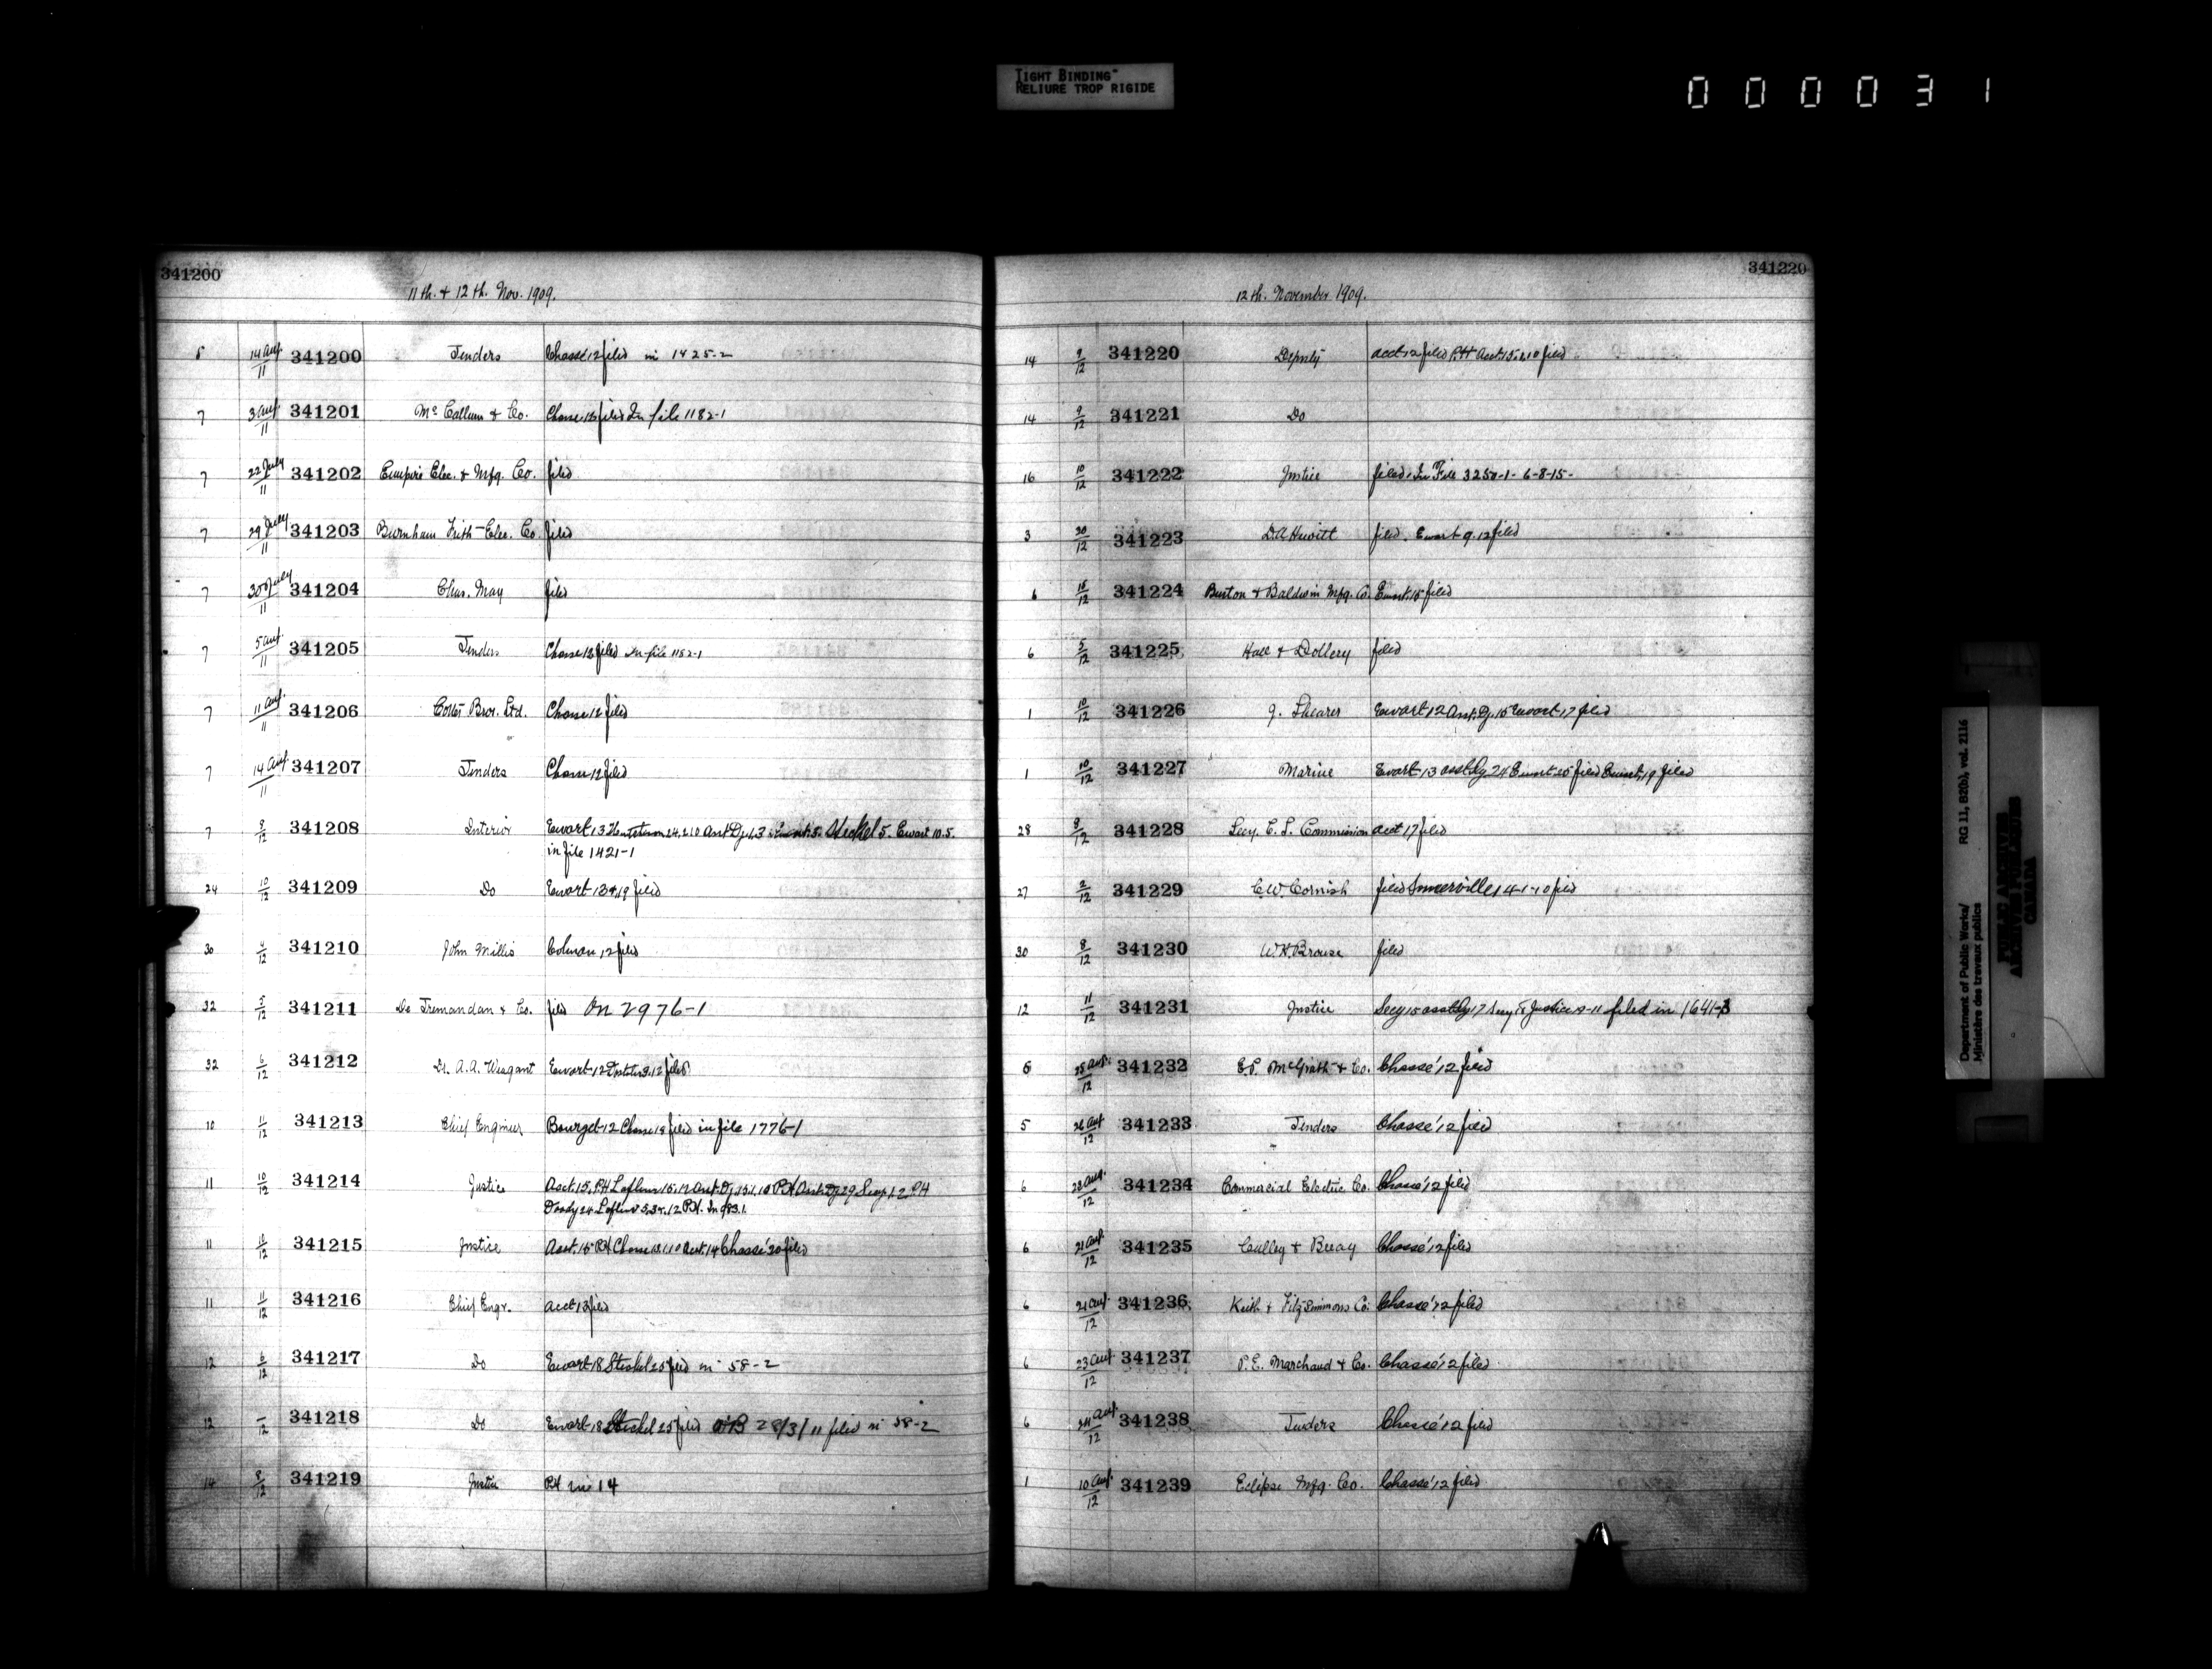 TIGHT BINDING
RELIURE TROP RIGIDE
000031
341200
11th. + 12th. Nov. 1909.
5 14 Aug. 11 341200 Tenders Chassé 12 filed in 1425-2
7 3 Aug 11 341201 Mc Callum & Co. filed In file 1182-1
7 22 July 11 341202 Empire Elec. & Mfg. Co. filed
7 29 July 11 341203 Burnham Frith Elec. Co. filed
7 30 July 11 341204 Chas. May filed
7 5 Aug. 11 341205 Tenders Chasse 12 filed In file 1182-1
7 11 Aug 11 341206 Bros. Ltd. Chasse 12 filed
7 14 Aug 11 341207 Tenders Chasse 12 filed
7 8/12 341208 Interior Ewart 13 Steckel 5. Ewart 10.5.
in file 1421-1
24 10/12 341209 Do Ewart 13 & 19 filed
30 341210 John Millis Colman 12 filed
32 5/12 341211 De Tremandan & Co. filed On 2976-1
32 6/12 341212 Dr. A.A. Weagant Ewart 12 filed
10 11/12 341213 Chief Engineer Bourget 12 Chasse 18 filed in file 1776-1
11 10/12 341214 Justice Acct. 15. PH
11 10/12 341215 Justice Acct. 15 PH Chassé 20 filed
11 11/12 341216 Chief Engr. Acct 13 filed
12 6/12 341217 Do Ewart 18 Steckel 25 filed in 58-2
12 341218 Do Ewart 18 Steckel 25 filed 28/3/11 filed in 58-2
14 8/12 341219 Justice PH 14
341220
12th. November 1909.
14 9/12 341220 Deputy Acct 12 filed PH Acct. 15.1.10 filed
14 9/12 341221 Do
16 10/12 341222 Justice filed. In File 3250-1- 6-8-15-
3 20/12 341223 D.A Hewitt filed. Ewart 9.12 filed
6 15/12 341224 Burton & Baldwin Mfg. Co. Ewart 15 filed
6 5/12 341225 Hall & Dollery filed
1 10/12 341226 J. Shearer Ewart 12 Asst. Dy. 15 Ewart 17 filed
1 10/12 341227 Marine Ewart 13 asst Dy 24 Ewart 25 filed Ewart 19 filed
28 8/12 341228 Secy. C. S. Commission acct 17 filed
27 2/12 341229 C.W. Cornish filed Somerville 14-1-10 filed
30 8/12 341230 W.H. Brouse filed
12 11/12 341231 Justice Secy 15 asst Dy 17 Secy 18 Justice filed in 1641-3
6 25 Aug. 12 341232 E.P. McGrath & Co. Chassé 12 filed
5 26 Aug 12 341233 Tenders Chassé 12 filed
6 23 Aug. 12 341234 Commercial Electric Co. Chassé 12 filed
6 21 Aug. 12 341235 Culley & Breay Chassé 12 filed
6 21 Aug. 12 341236 Keith & Fitzsimmons Co. Chassé 12 filed
6 23 Aug 12 341237 P.E. Marchand & Co. Chassé 12 filed
6 24 Aug. 12 341238 Tenders Chassé 12 filed
1 10 Aug. 12 341239 Eclipse Mfg. Co. Chassé 12 filed
Department of Public Works/ RG 11, B2(b), vol. 2116
Ministère des travaux publics
PUBLIC ARCHIVES
ARCHIVES PUBLIQUES
CANADA